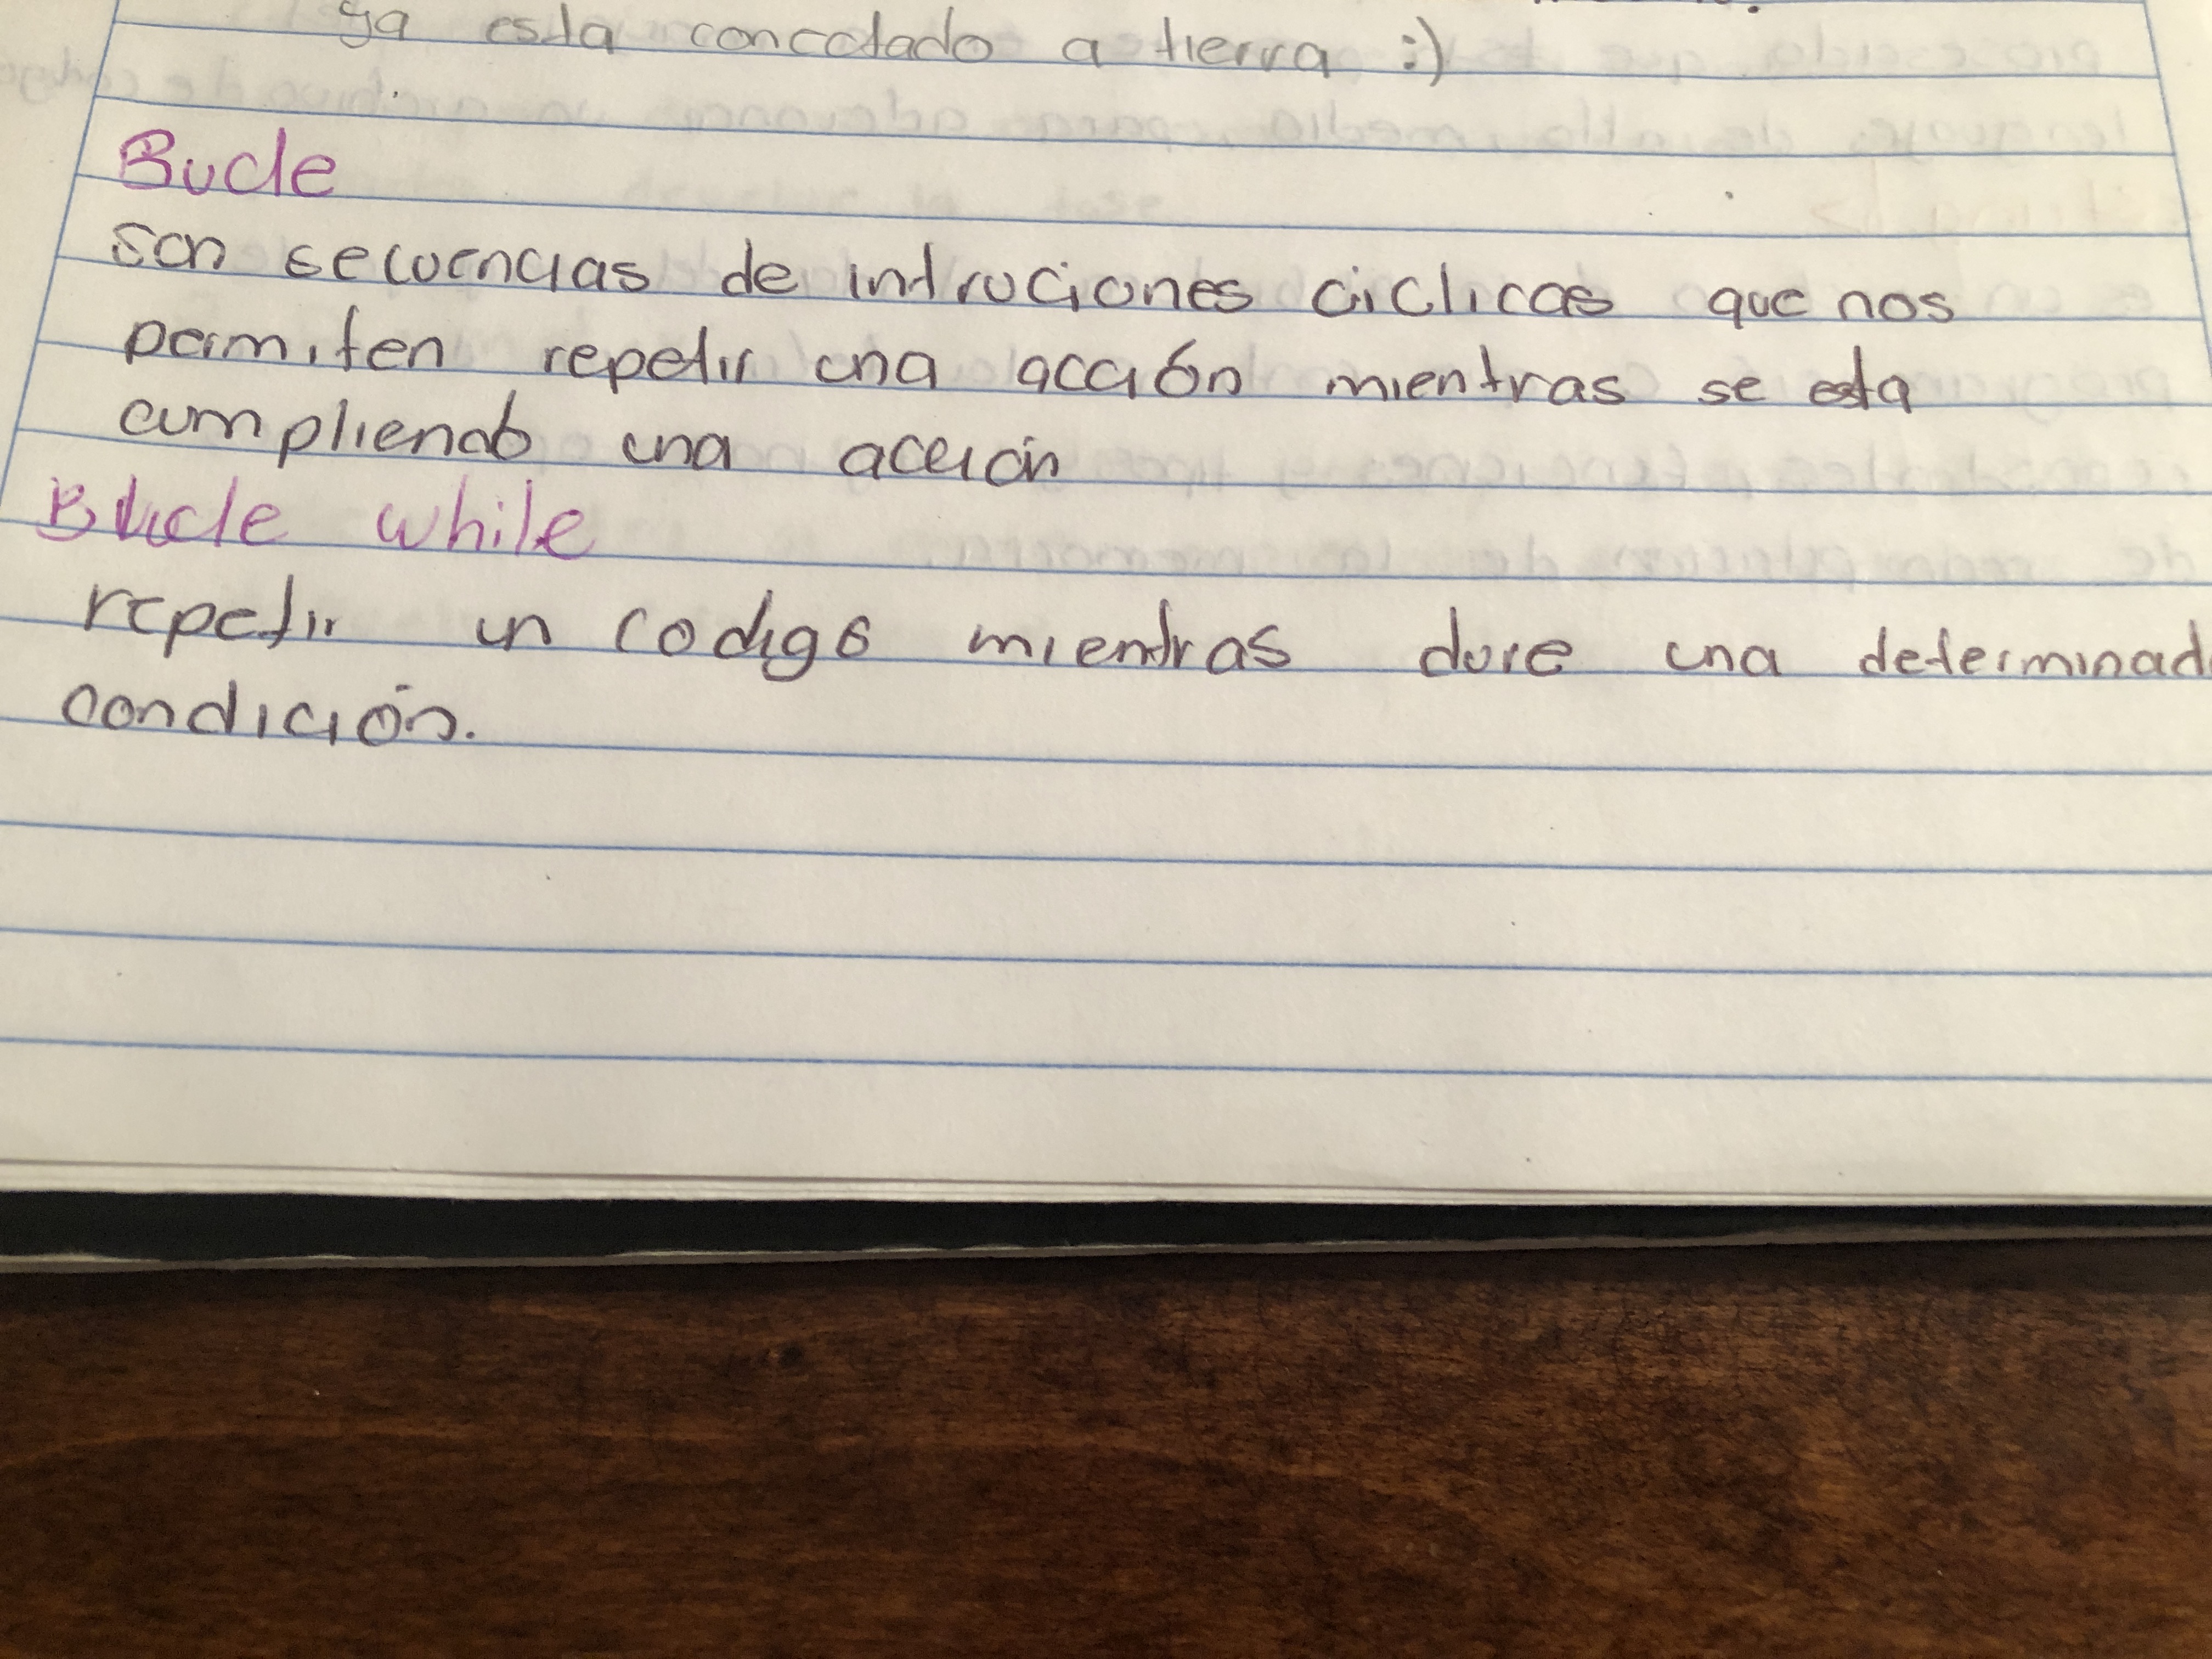 ya esta conectado a tierra :)
Bucle
son secuencias de intruciones ciclicas que nos
permiten repetir una acción mientras se esta
cumpliendo una acción
Bucle while
repetir un codigo mientras dure una determinad
condición.